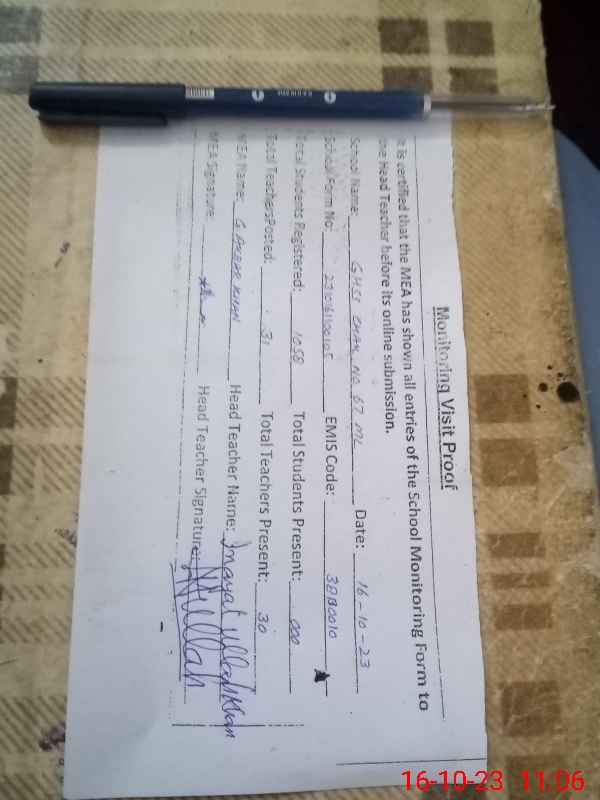 Monitoring Visit Proof
It is certified that the MEA has shown all entries of the School Monitoring Form to
the Head Teacher before its online submission.
School Name: GHSS CHAK NO 67 ML Date: 16-10-23
School Form No: EMIS Code: 38B0010
Total Students Registered: 1058 Total Students Present: 000
Total TeachersPosted: 31 Total Teachers Present: 30
MEA Name: KHAN Head Teacher Name: Inayat ullah Khan
MEA Signature: Head Teacher Signature:
16-10-23 11:06